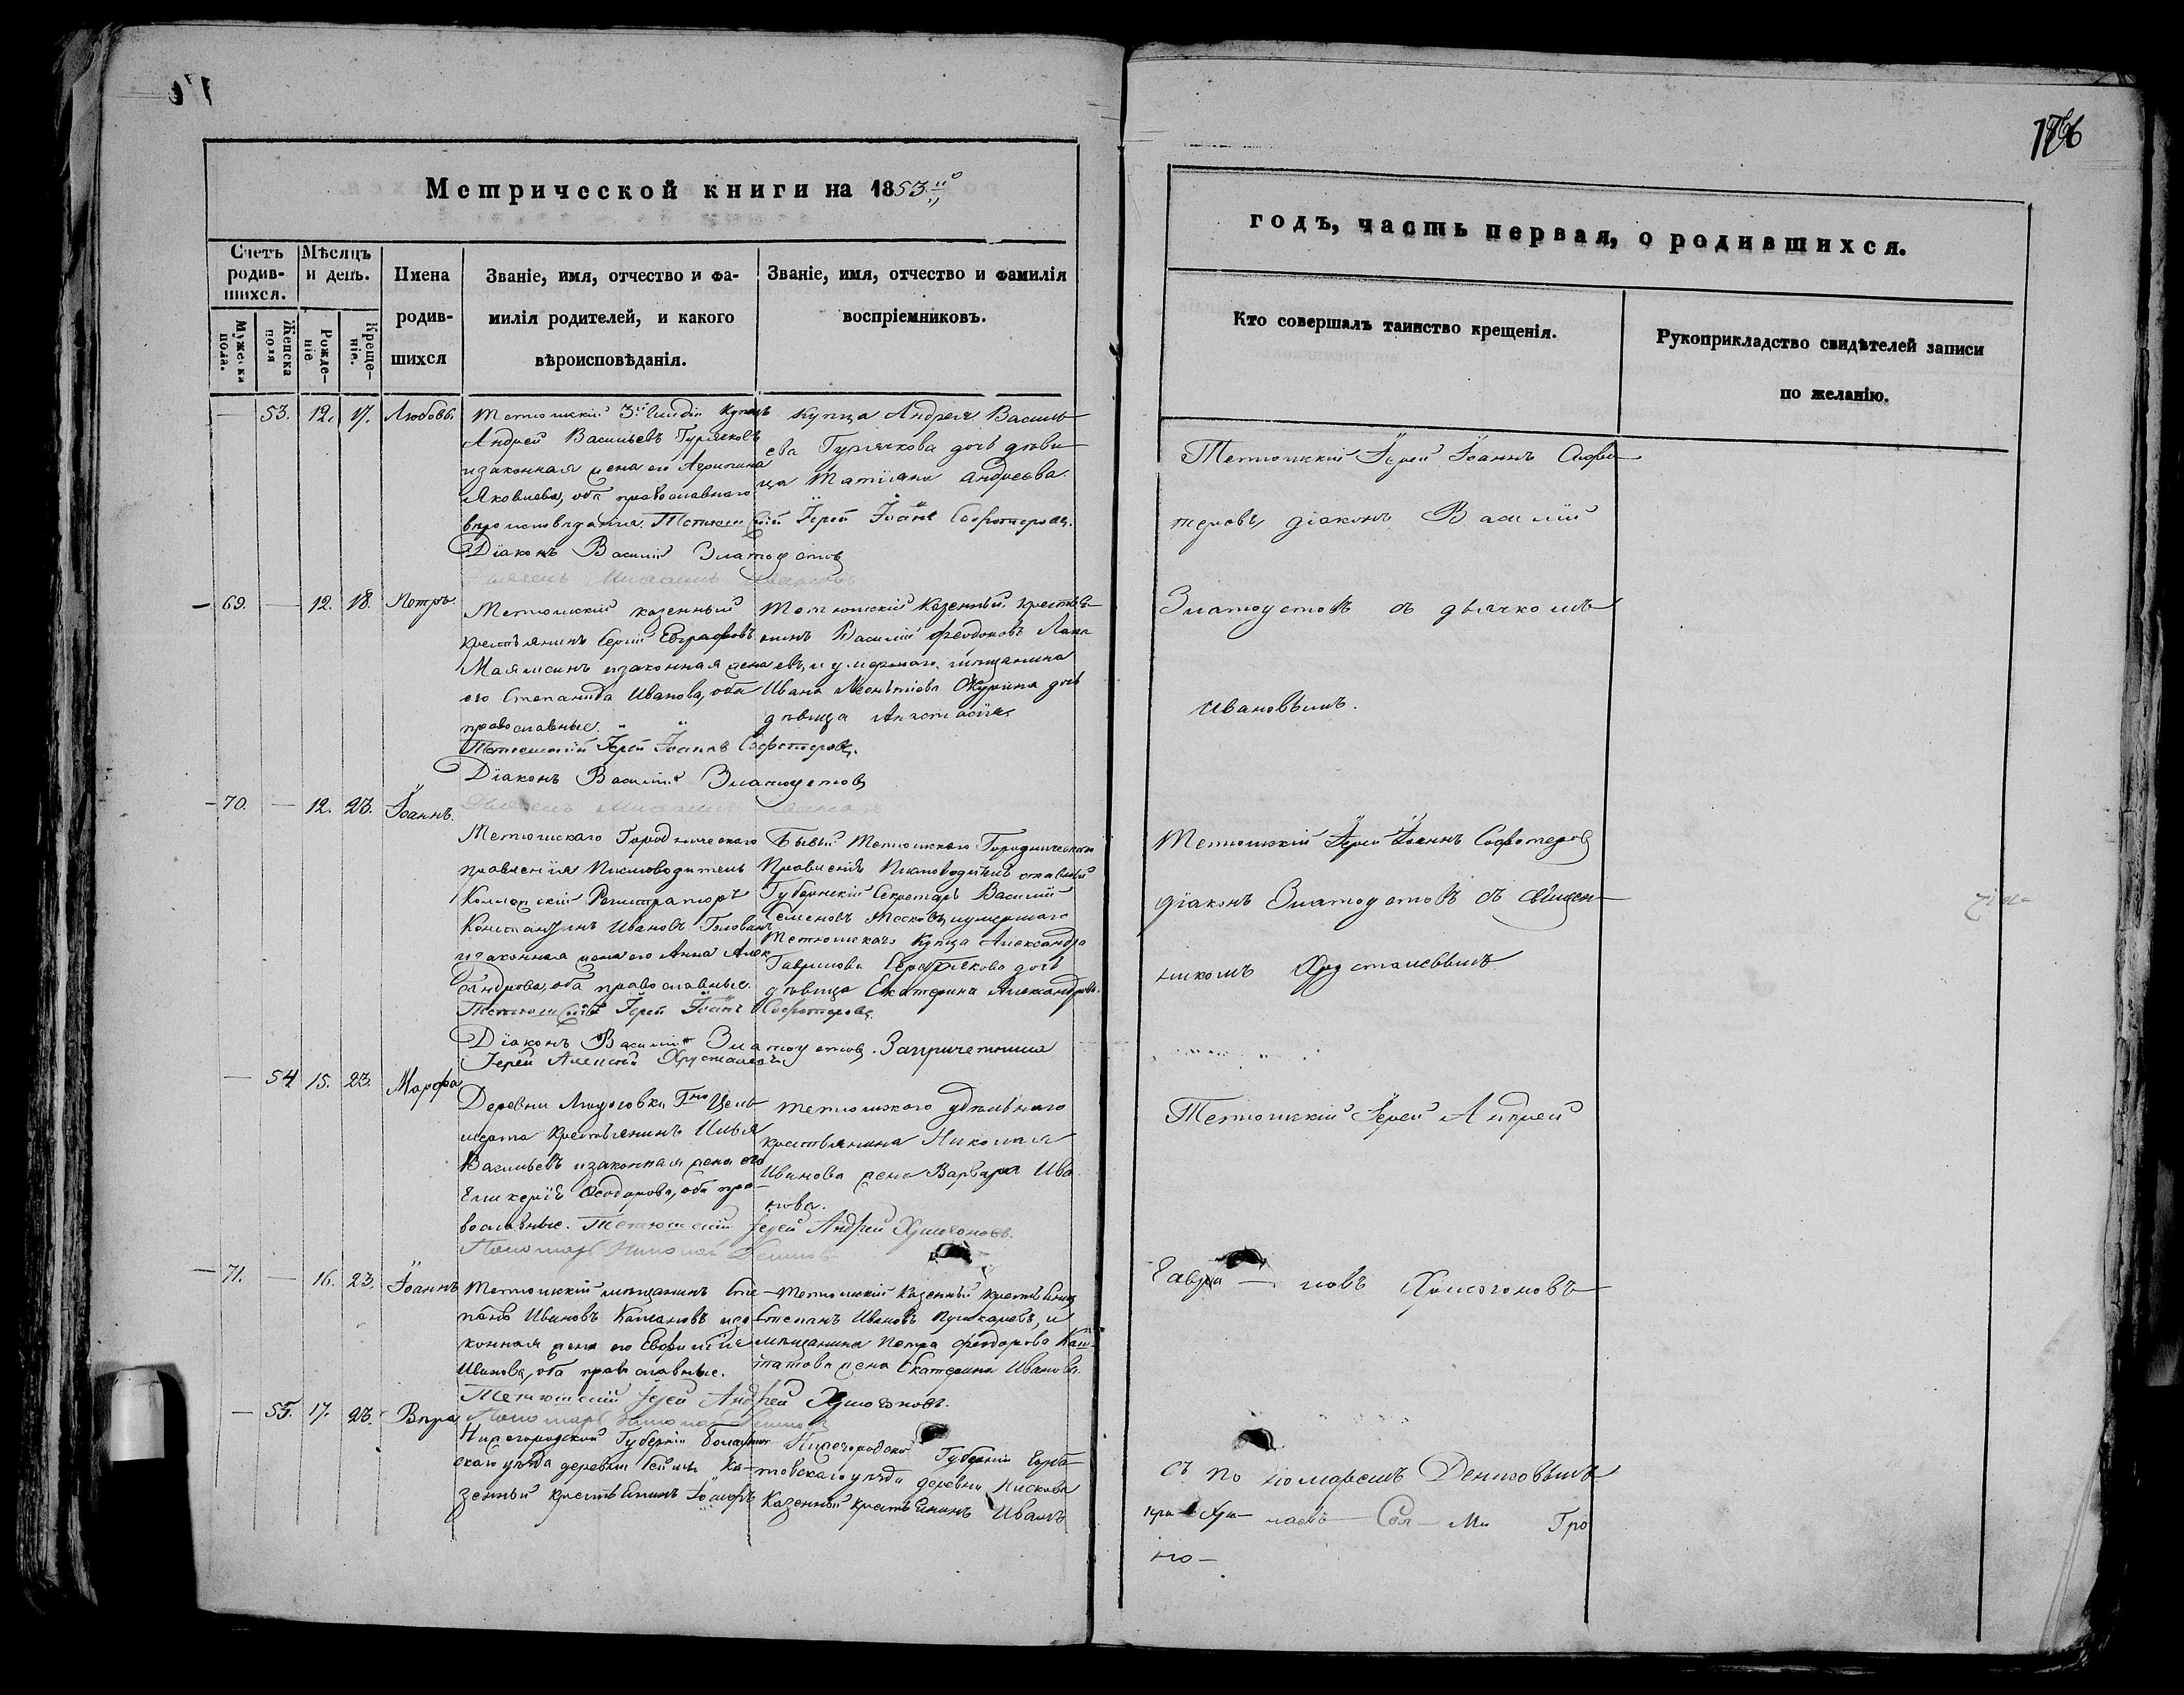 176
Метрической книги на 1853й
годъ, часть первая, о родившихся.
Счетъ родив-шихся.
Мѣсяцъ и день.
Имена родив-шихся
Званіе, имя, отчество и фа-
милія родителей, и какого
вѣроисповѣданія.
Званіе, имя, отчество и фамилія
воспріемниковъ.
Мужеска пола.
Женска пола
Рожде-ніе
Креще-ніе.
Кто совершалъ таинство крещенія.
Рукоприкладство свидѣтелей записи
по желанію.
— 53. 12. 17. Любовь.
Тетюшскій 3й Гильдіи Купецъ
Андрей Васильевъ Гурячковъ
и законная жена его Агрипина
Яковлева, оба православнаго
вѣроисповѣданія. Тетюшскій Іерей Іоаннъ Софотеровъ.
Діаконъ Василій Златоустовъ
Дьячекъ Михаилъ Ивановъ
купца Андрея Василь-
ева Гурячкова дочь дѣви-
ца Татіяна Андреева.
Тетюшскій Іерей Іоаннъ Софо-
теровъ, діаконъ Василій
Златоустовъ съ дьячкомъ
Ивановымъ.
69. — 12. 18. Петръ.
Тетюшскій казенный
крестьянинъ Сергій Евграфовъ
и законная жена
его Степанида Иванова, оба
православные.
Тетюшскій Іерей Іоаннъ Софотеровъ.
Діаконъ Василій Златоустовъ
Дьячекъ Михаилъ Ивановъ
Тетюшскій Казенный крестья-
нинъ Василій Феодоровъ
и умершаго мѣщанина
Ивана дочь
дѣвица Анастасія.
70. — 12. 23. Іоаннъ.
Тетюшскаго Городническаго
правленія Письмоводитель
Коллежскій Регистраторъ
Константинъ Ивановъ
и законная жена его Анна Алек-
сандрова, оба православные.
Тетюшскій Іерей Іоаннъ Софотеровъ.
Діаконъ Василій Златоустовъ. За причетника
Іерей Алексій Хрусталевъ
Бывый Тетюшскаго Городническаго
Правленія Письмоводитель отставный
Губернскій Секретарь Василій
Семеновъ и умершаго
Тетюшскаго Купца Александра
Гаврилова дочь
дѣвица Екатерина Александрова.
Тетюшскій Іерей Іоаннъ Софотеровъ
діаконъ Златоустовъ съ священ-
никомъ Хрусталевымъ.
— 54 15. 23. Марфа
Деревни крестьянинъ Илья
Васильевъ и законная жена его
Гликерія Феодорова, оба пра-
вославные. Тетюшскій Іерей Андрей Хрисогоновъ.
Пономарь Николай Денисовъ
Тетюшскаго удѣльнаго
крестьянина Николая
Иванова жена Варвара Ива-
нова.
Тетюшскій Іерей Андрей
Гаври — ловъ Хрисогоновъ
съ пономаремъ Денисовымъ
71. — 16. 23. Іоаннъ
Тетюшскій мѣщанинъ Сте-
панъ Ивановъ и за-
конная жена его Евфимія
Иванова, оба православные.
Тетюшскій Іерей Андрей Хрисогоновъ.
Пономарь Николай Денисовъ
Тетюшскій Казенный крестьянинъ
Степанъ Ивановъ Пушкаревъ, и
мѣщанина Петра Феодорова
жена Екатерина Иванова.
— 55. 17. 23. Вѣра
Нижегородской Губерніи
скаго уѣзда деревни Ка-
зенный крестьянинъ
Нижегородской Губерніи Горба-
товскаго уѣзда деревни
Казенный крестьянинъ Иванъ